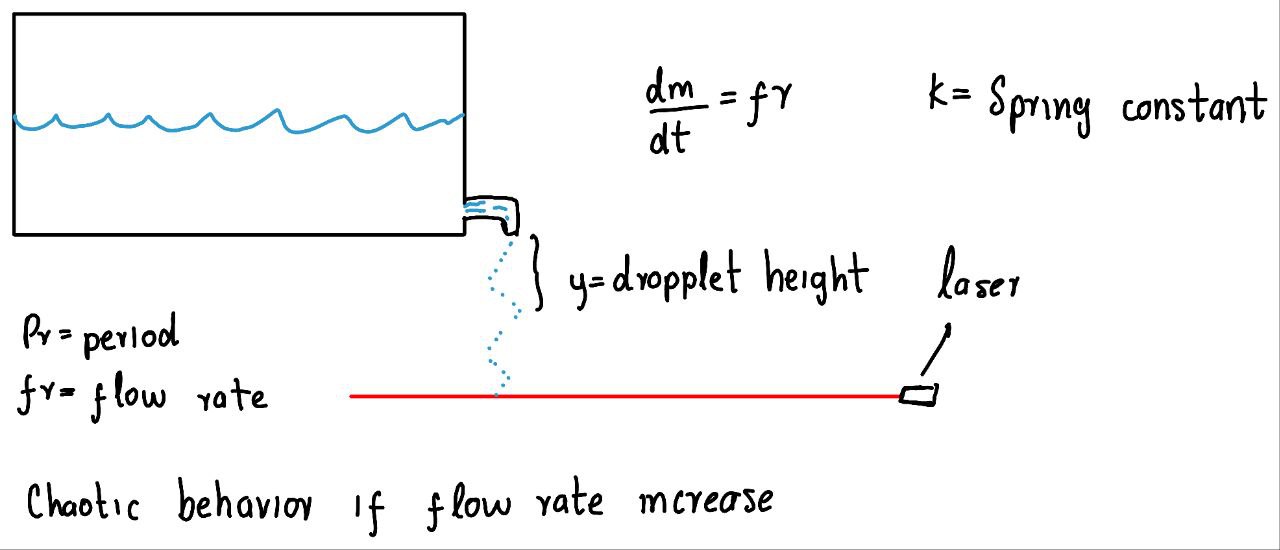 dm/dt = fr
k = Spring constant
y = dropplet height
laser
Pr = period
fr = flow rate
Chaotic behavior if flow rate increase